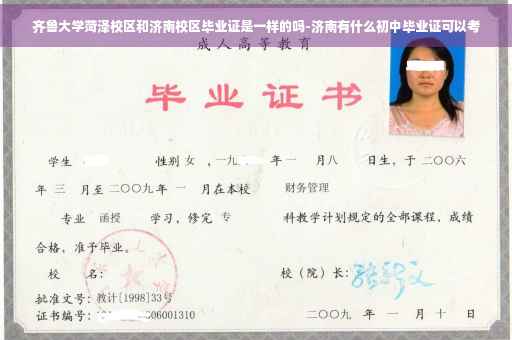 齐鲁大学菏泽校区和济南校区毕业证是一样的吗-济南有什么初中毕业证可以考
成人高等教育
毕业证书
学生 性别 女 ，一九 年一 月八 日生，于二〇〇六
年 三 月至二〇〇九年 一 月在本校 财务管理
专业 函授 学习，修完 专 科教学计划规定的全部课程，成绩
合格，准予毕业。
校 名： 校（院）长：
批准文号：教计[1998]33号
证书编号： 06001310 二〇〇九 年 一 月 十 日